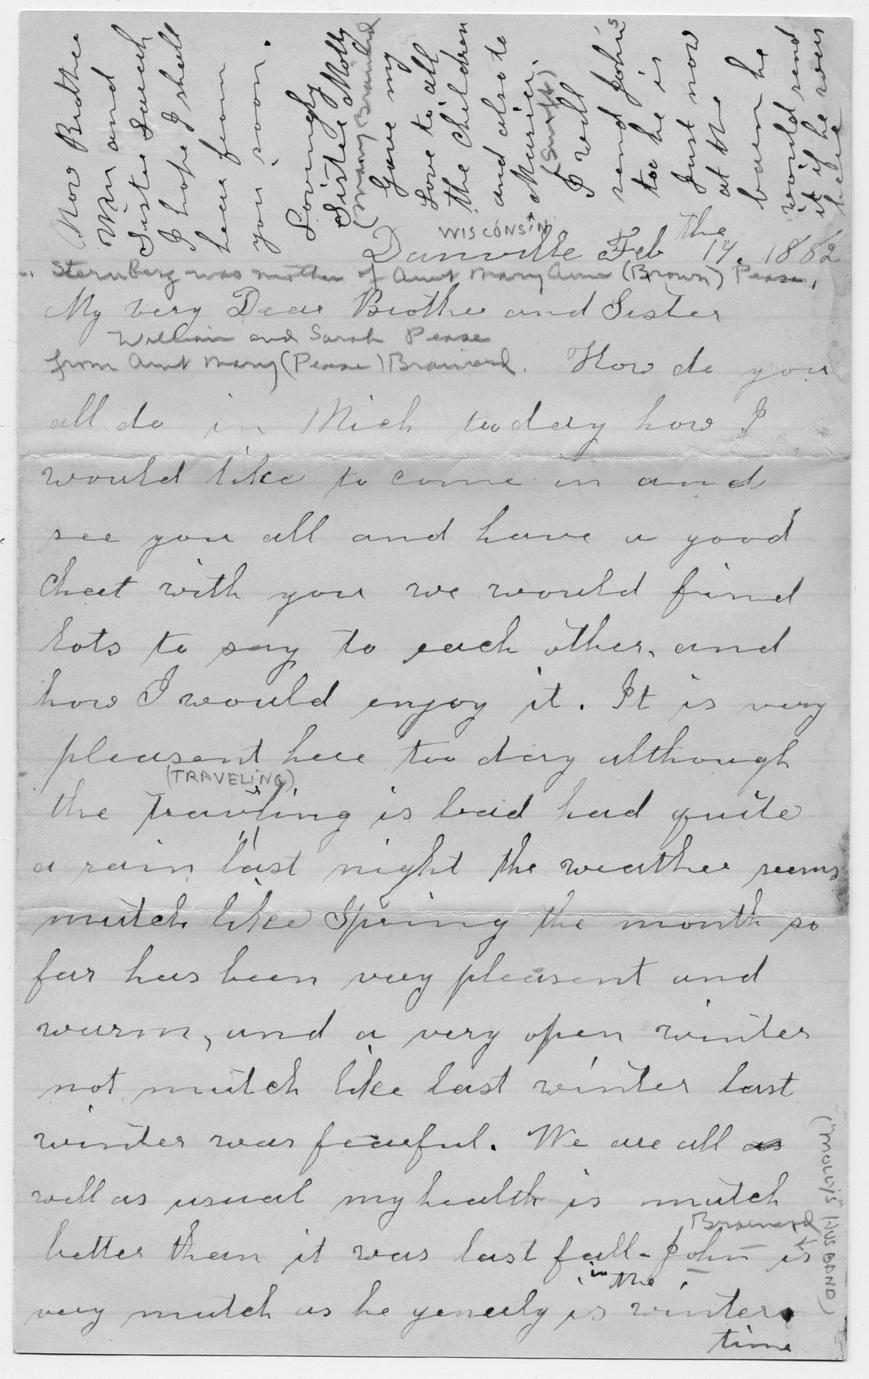 Now Brother
Wm and
Sister Sarah
I hope I shall
hear from
you soon.
Lovingly
Sister Molly
(Mary Brainard
Gave my
Love to all
the Children
and also to
Maria.
(Smith)
I will
send John's
too he is
Just now
at the
barn he
would send
it if he were
here
WISCONSIN
Danville Feb the 14. 1882
Sternberg was mother of Aunt Mary Ann (Brown) Pease.
My very Dear Brother and Sister
William and Sarah Pease
from Aunt Mary (Pease) Brainerd. How do you
all do in Mich too day how I
would like to come in and
see you all and have a good
Chat with you we would find
lots to say to each other, and
how I would enjoy it. It is very
pleasent here too day although
(TRAVELING)
the Travling is bad had quite
a rain last night the weather seems
mutch like Spring the month so
far has been very pleasent and
warm, and a very open winter
not mutch like last winter last
winter was fearful. We are all as
well as usual my health is mutch
Brainerd
better than it was last fall - John is
("MOLLY'S" HUSBAND)
in the
very mutch as he generly is winter
time